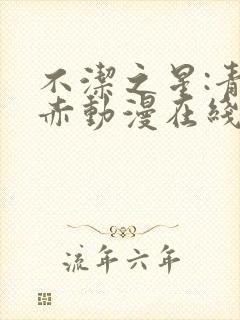 不潔之星:青
赤動漫在綫
流年六年